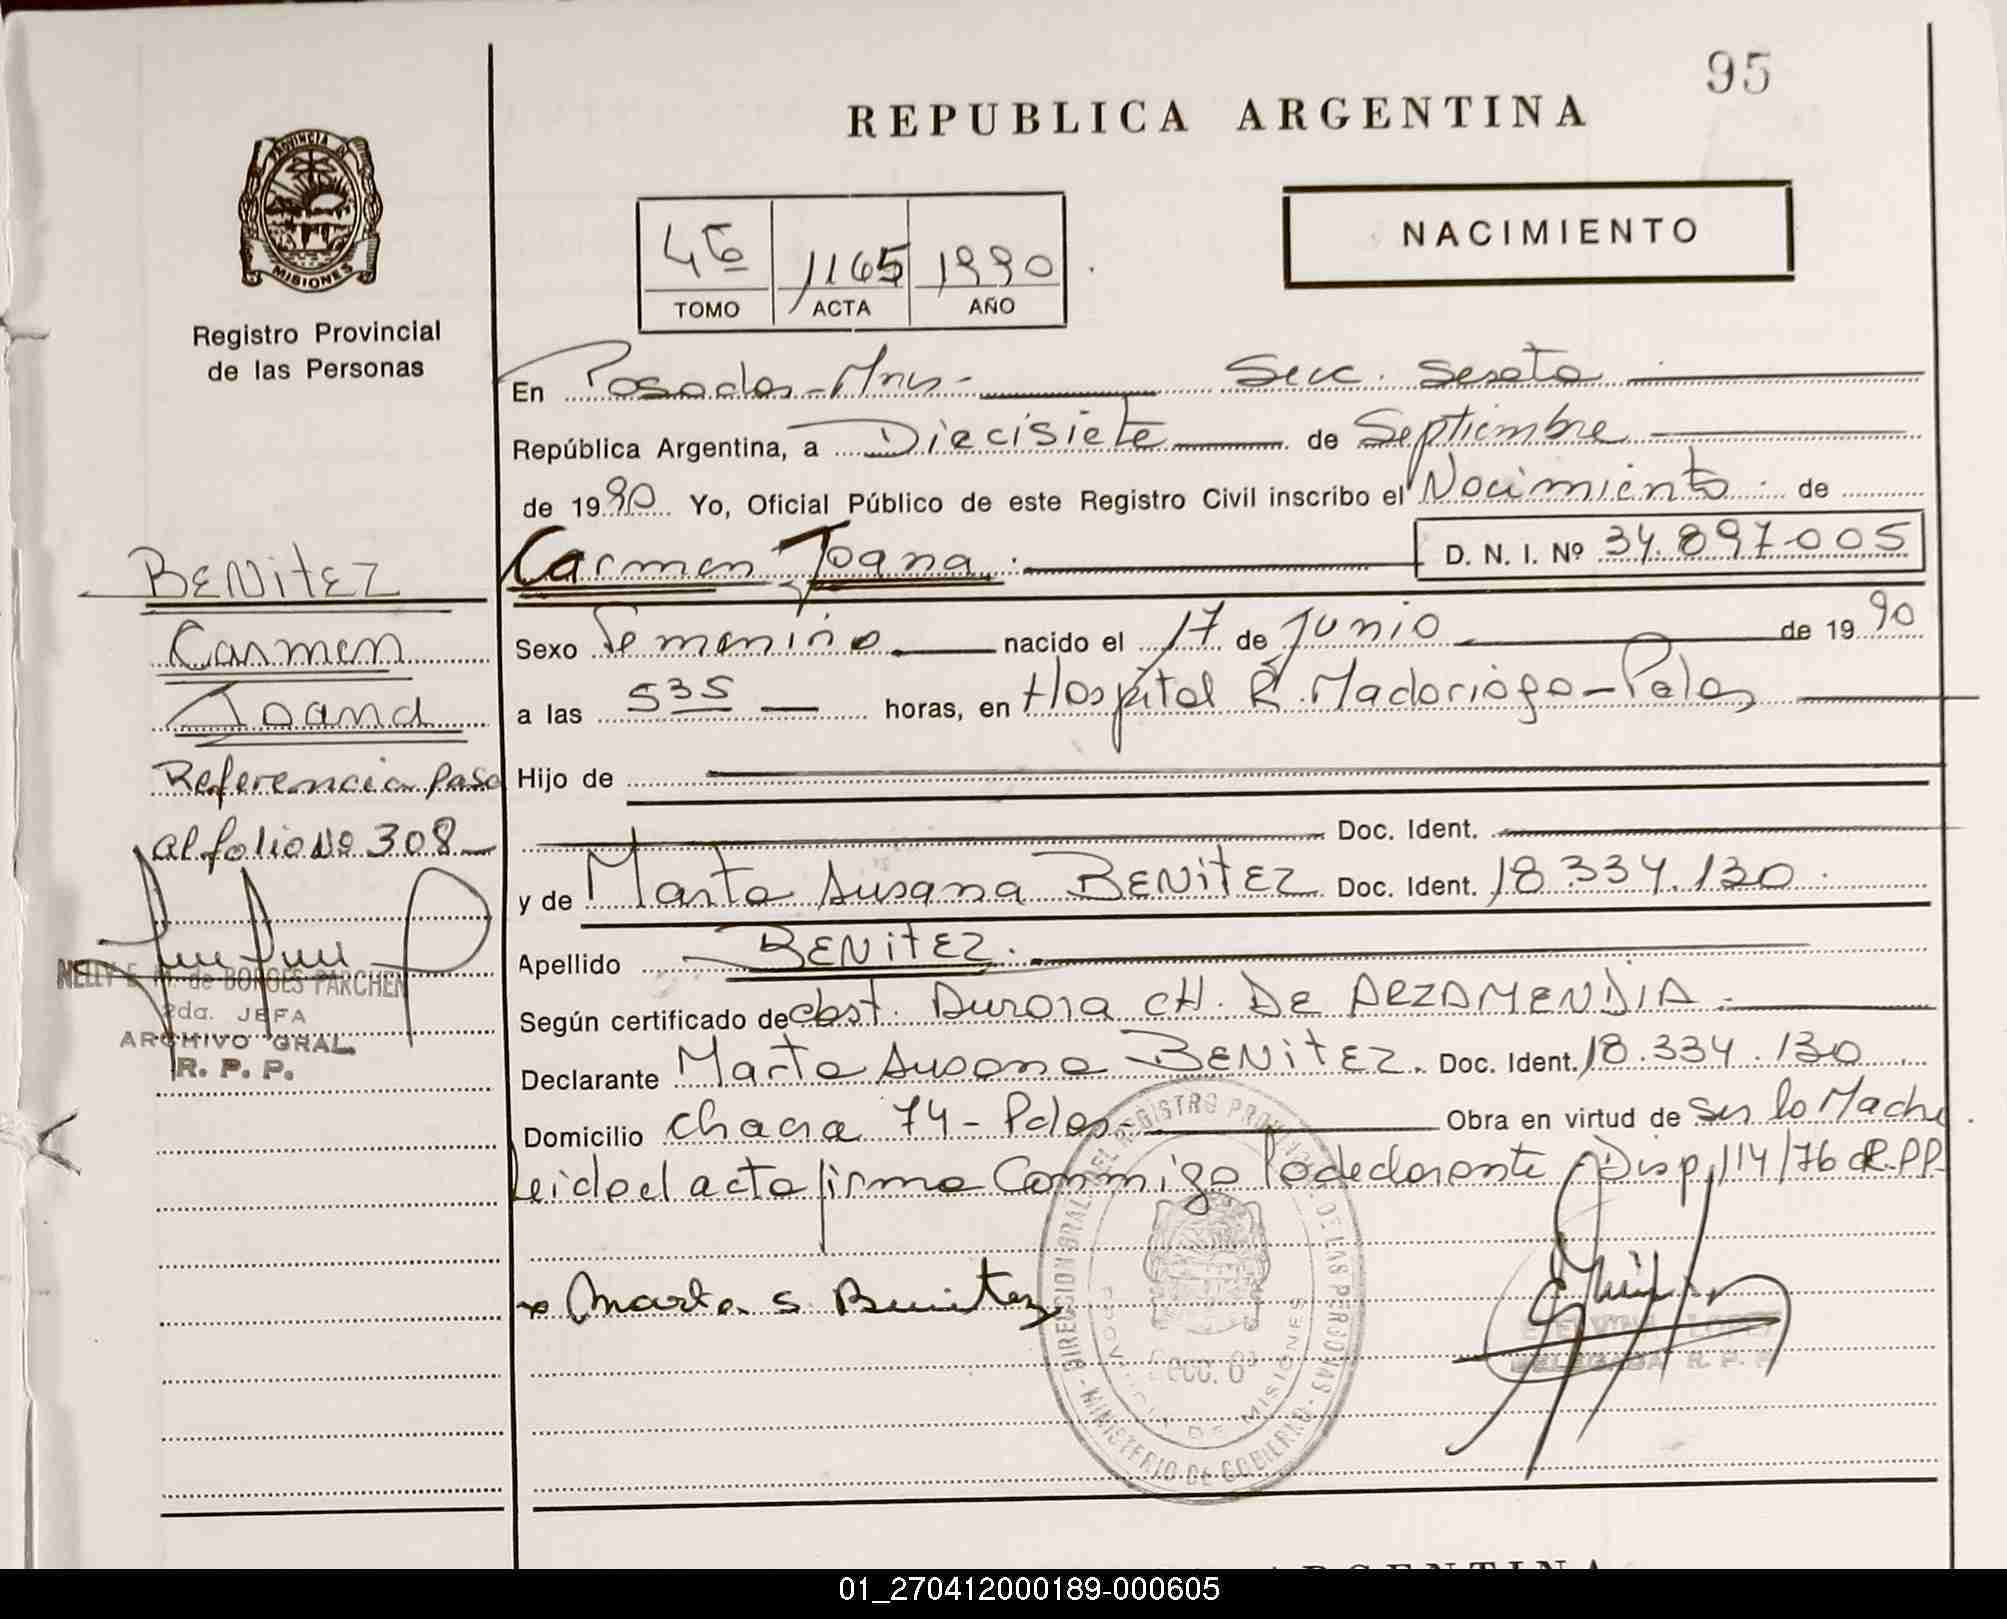 95
REPUBLICA ARGENTINA
NACIMIENTO
PROVINCIA DE
MISIONES
Registro Provincial
de las Personas
4to 1165 1990
TOMO ACTA AÑO
En Posadas-Mnes- Secc. Sexta
República Argentina, a Diecisiete de Septiembre
de 1990 Yo, Oficial Público de este Registro Civil inscribo el Nacimiento de
Carmen Joana. D. N. I. Nº 34.897.005
Sexo Femenino nacido el 17 de Junio de 1990
a las 535 horas, en Hospital R. Madariaga-Pdas
Hijo de
Doc. Ident.
y de Marta Susana BENITEZ Doc. Ident. 18.334.130.
Apellido BENITEZ.
Según certificado de obst. Aurora CH. DE ARZAMENDIA.
Declarante Marta Susana BENITEZ. Doc. Ident. 18.334.130
Domicilio chacra 74-Pdas- Obra en virtud de Ser la Madre
Leido el acta firma Conmigo la declarante Disp. 114/76 d R.P.P.
x Marta S. Benitez
BENITEZ
Carmen
Joana
Referencia Pasa
al folio No 308-
NELLY E. M. de BORGES PARCHEN
2da. JEFA
ARCHIVO GRAL.
R. P. P.
DIRECCION GRAL. DEL REGISTRO PROVINCIAL DE LAS PERSONAS - MINISTERIO DE GOBIERNO
PROVINCIA DE MISIONES
Secc. 6ª
LOPEZ
DELEGADA R. P. P.
ARGENTINA
01_270412000189-000605